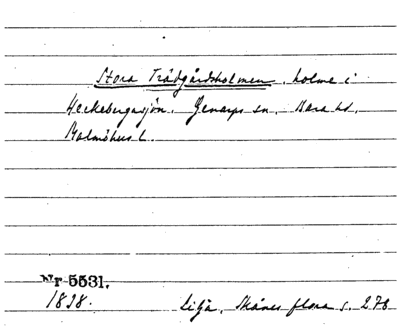 Stora Trädgårdsholmen, holme i
Heckebergasjön. Genarps sn. Bara hd.
Malmöhus l.
Nr 5531.
1838.
Lilja, Skånes flora s. 278